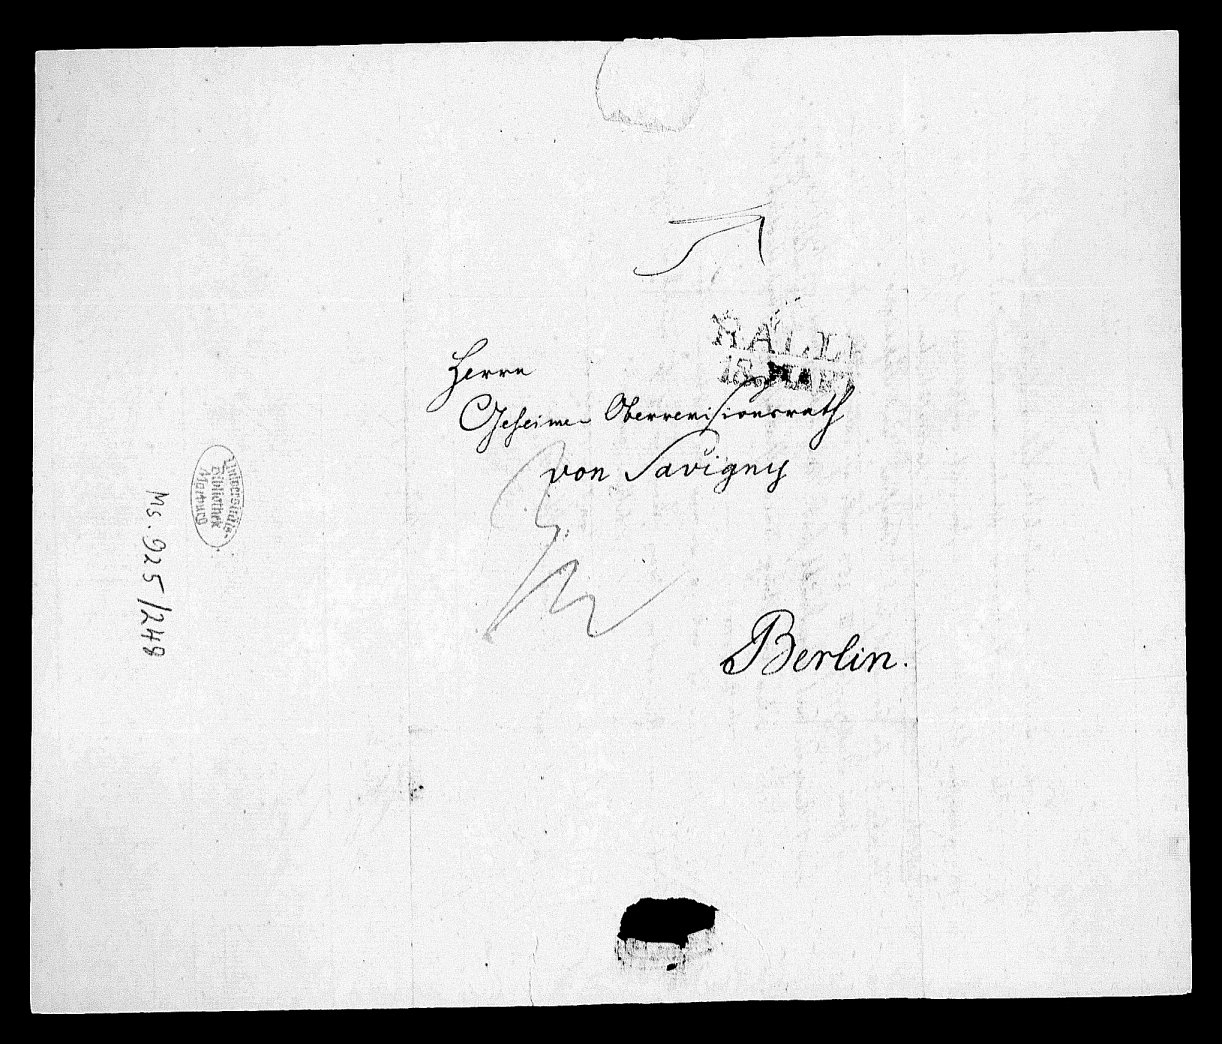 HALLE
18. MÄRZ
Herrn
Geheime Oberrevisionsrath
von Savigny
Berlin.
Universitäts-
Bibliothek
Marburg
Ms. 925/248